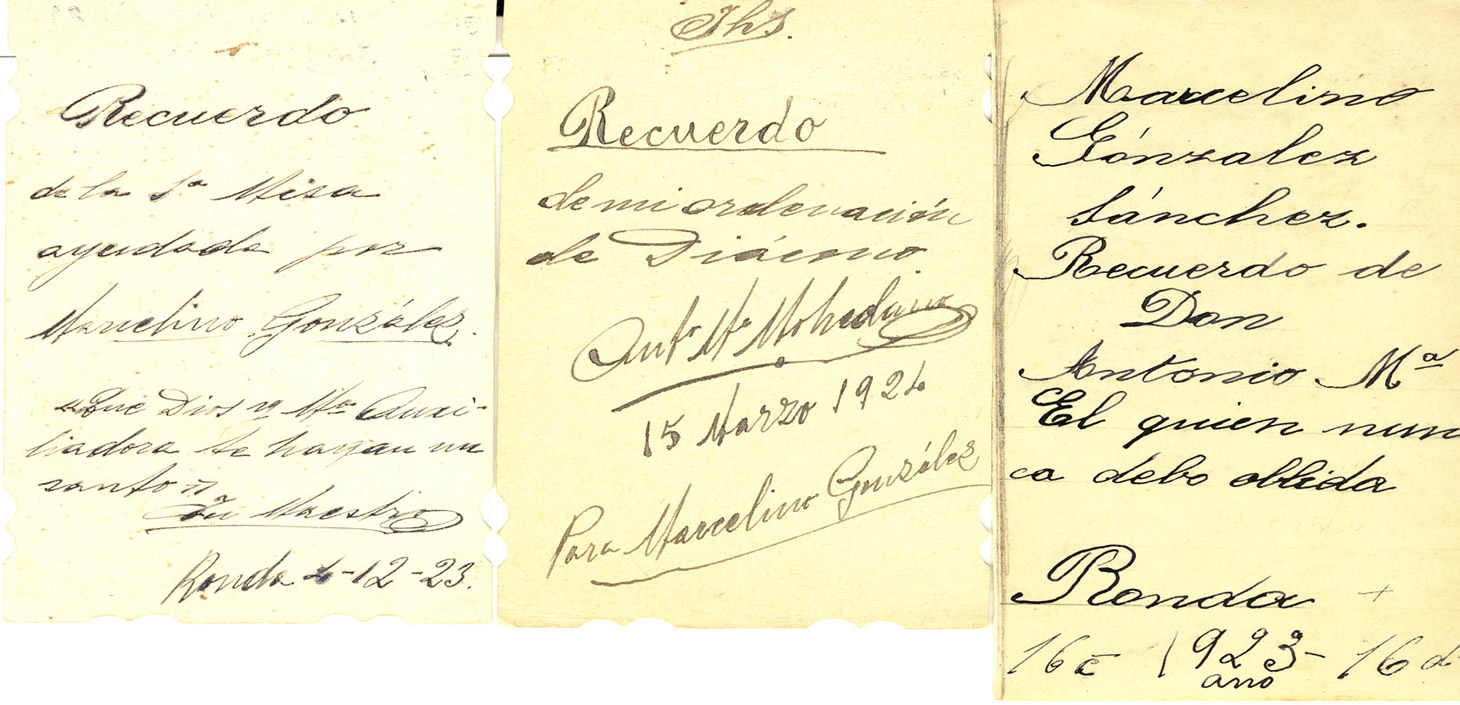 Recuerdo
de la 1ª Misa
ayudada por
Marcelino González.
"Que Dios y Mª Auxi-
liadora te hagan un
santo"
Tu Maestro
Ronda 4-12-23.
Jhs.
Recuerdo
de mi ordenación
de Diácono
Antº Mª Mohedano
15 Marzo 1924
Para Marcelino González
Marcelino
Gónzalez
Sánchez.
Recuerdo de
Don
Antonio Mª
El quien nun
ca debo obblida
Ronda
16 1923 - 16 d
ano